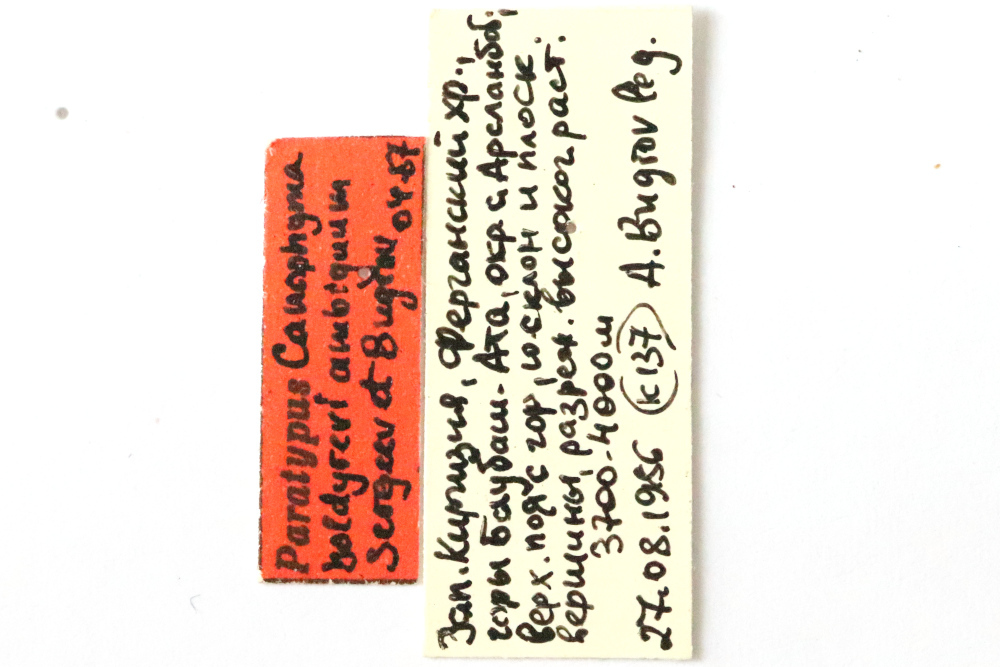 Paratypus Conophyma
boldyrevi ambiguum
Sergeev et Bugrov
04.87
Зап. Киргизия, Ферганский хр.,
горы Баубаш-Ата, окр с. Арсланбоб,
верх. пояс гор, ю склон и плоск.
вершины, разреж. высоког. раст.
3700-4000 м
27.08.1986 (К137) A. Bugrov leg.